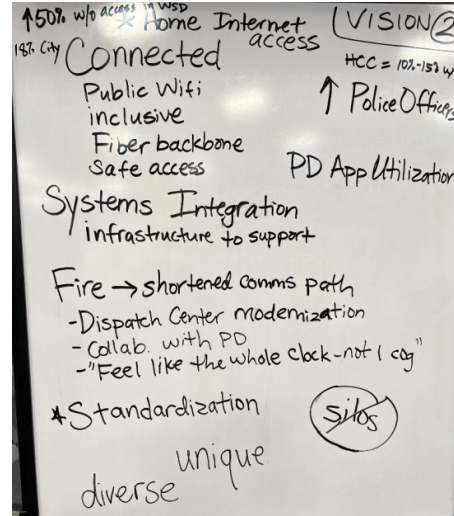 ↑50% w/o access in WSD
* Home Internet access
18% City
VISION 2
Connected
HCC = 10%-15% w
Public Wifi
↑ Police Officers
inclusive
Fiber backbone
Safe access
PD App Utilization
Systems Integration
infrastructure to support
Fire → shortened comms path
-Dispatch Center modernization
-Collab. with PD
-"Feel like the whole clock-not 1 cog"
*Standardization
silos
unique
diverse